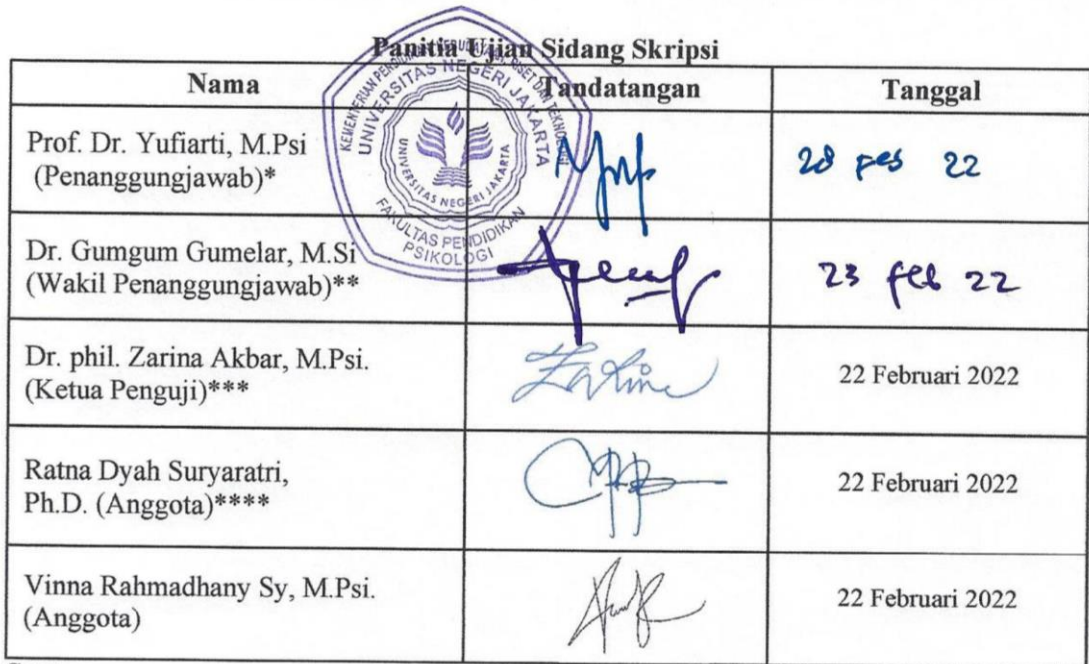 Panitia Ujian Sidang Skripsi
Nama Tandatangan Tanggal
Prof. Dr. Yufiarti, M.Psi
(Penanggungjawab)*
28 feb 22
Dr. Gumgum Gumelar, M.Si
(Wakil Penanggungjawab)**
23 feb 22
Dr. phil. Zarina Akbar, M.Psi.
(Ketua Penguji)***
22 Februari 2022
Ratna Dyah Suryaratri,
Ph.D. (Anggota)****
22 Februari 2022
Vinna Rahmadhany Sy, M.Psi.
(Anggota)
22 Februari 2022
KEMENTERIAN PENDIDIKAN, KEBUDAYAAN, RISET DAN TEKNOLOGI
UNIVERSITAS NEGERI JAKARTA
UNIVERSITAS NEGERI JAKARTA
FAKULTAS PENDIDIKAN
PSIKOLOGI